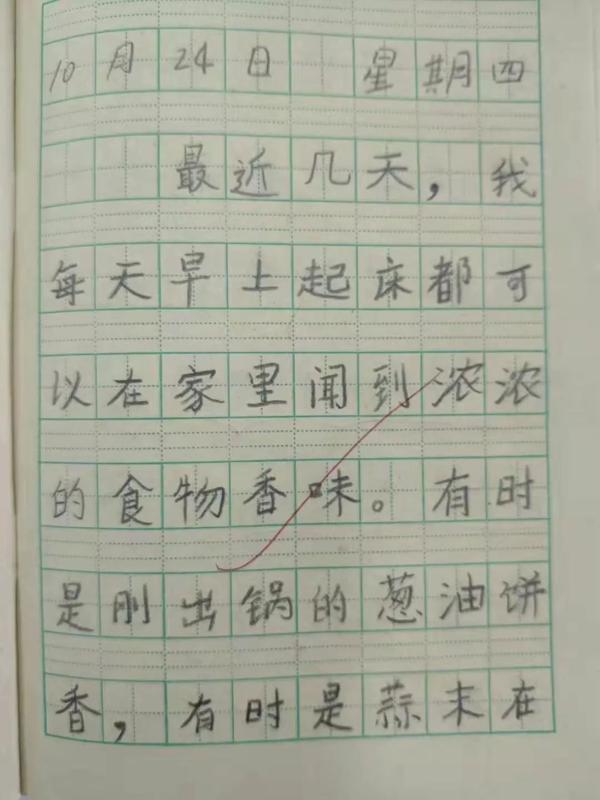 10月24日 星期四
最近几天，我
每天早上起床都可
以在家里闻到浓浓
的食物香味。有时
是刚出锅的葱油饼
香，有时是蒜末在